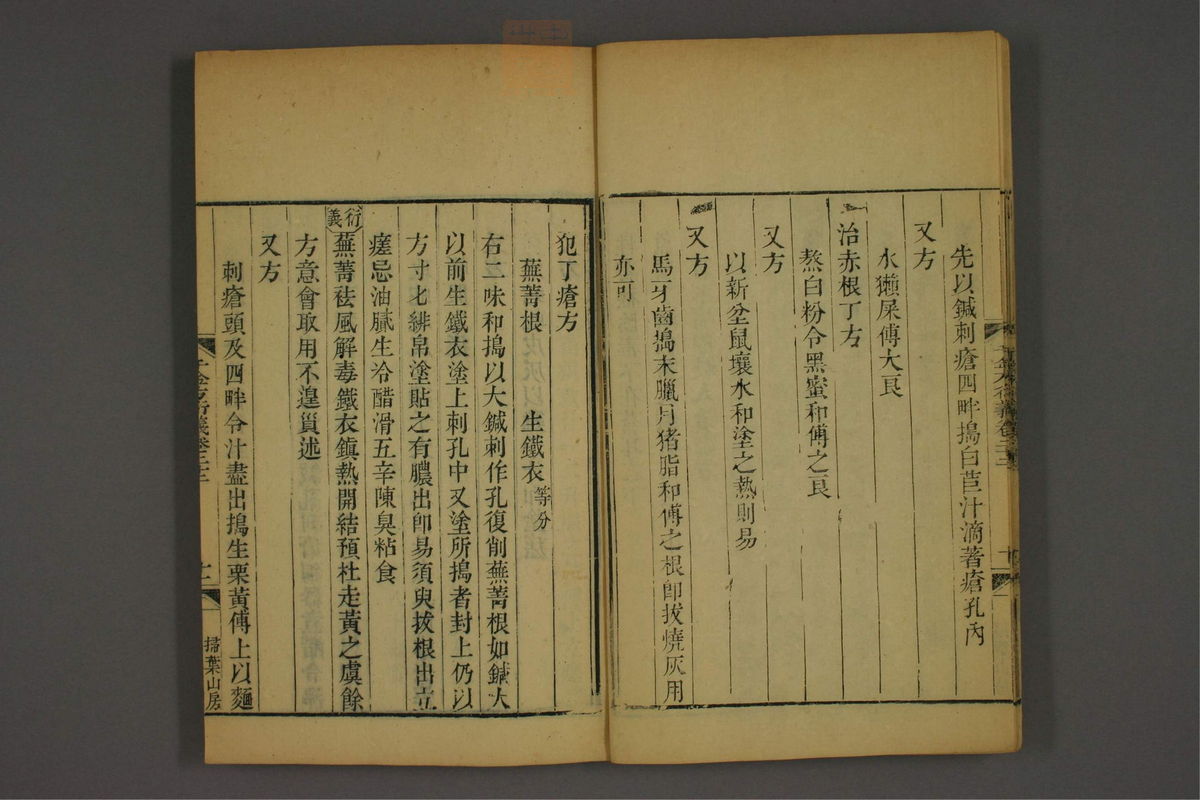 先以鍼刺瘡四畔搗白苣汁滴著瘡孔內
又方
水獺屎傅大良
治赤根丁方
熬白粉令黑蜜和傅之良
又方
以新坌鼠壤水和塗之熱則易
又方
馬牙齒搗末臘月猪脂和傅之根卽拔燒灰用
亦可
犯丁瘡方
蕪菁根 生鐵衣等分
右二味和搗以大鍼刺作孔復削蕪菁根如鍼大
以前生鐵衣塗上刺孔中又塗所搗者封上仍以
方寸匕緋帛塗貼之有膿出卽易須臾拔根出立
瘥忌油膩生冷醋滑五辛陳臭粘食
衍義 蕪菁祛風解毒鐵衣鎮熱開結預杜走黃之虞餘
方意會取用不遑筫述
又方
刺瘡頭及四畔令汁盡出搗生栗黃傅上以麵
千金方衍義卷二十二
掃葉山房